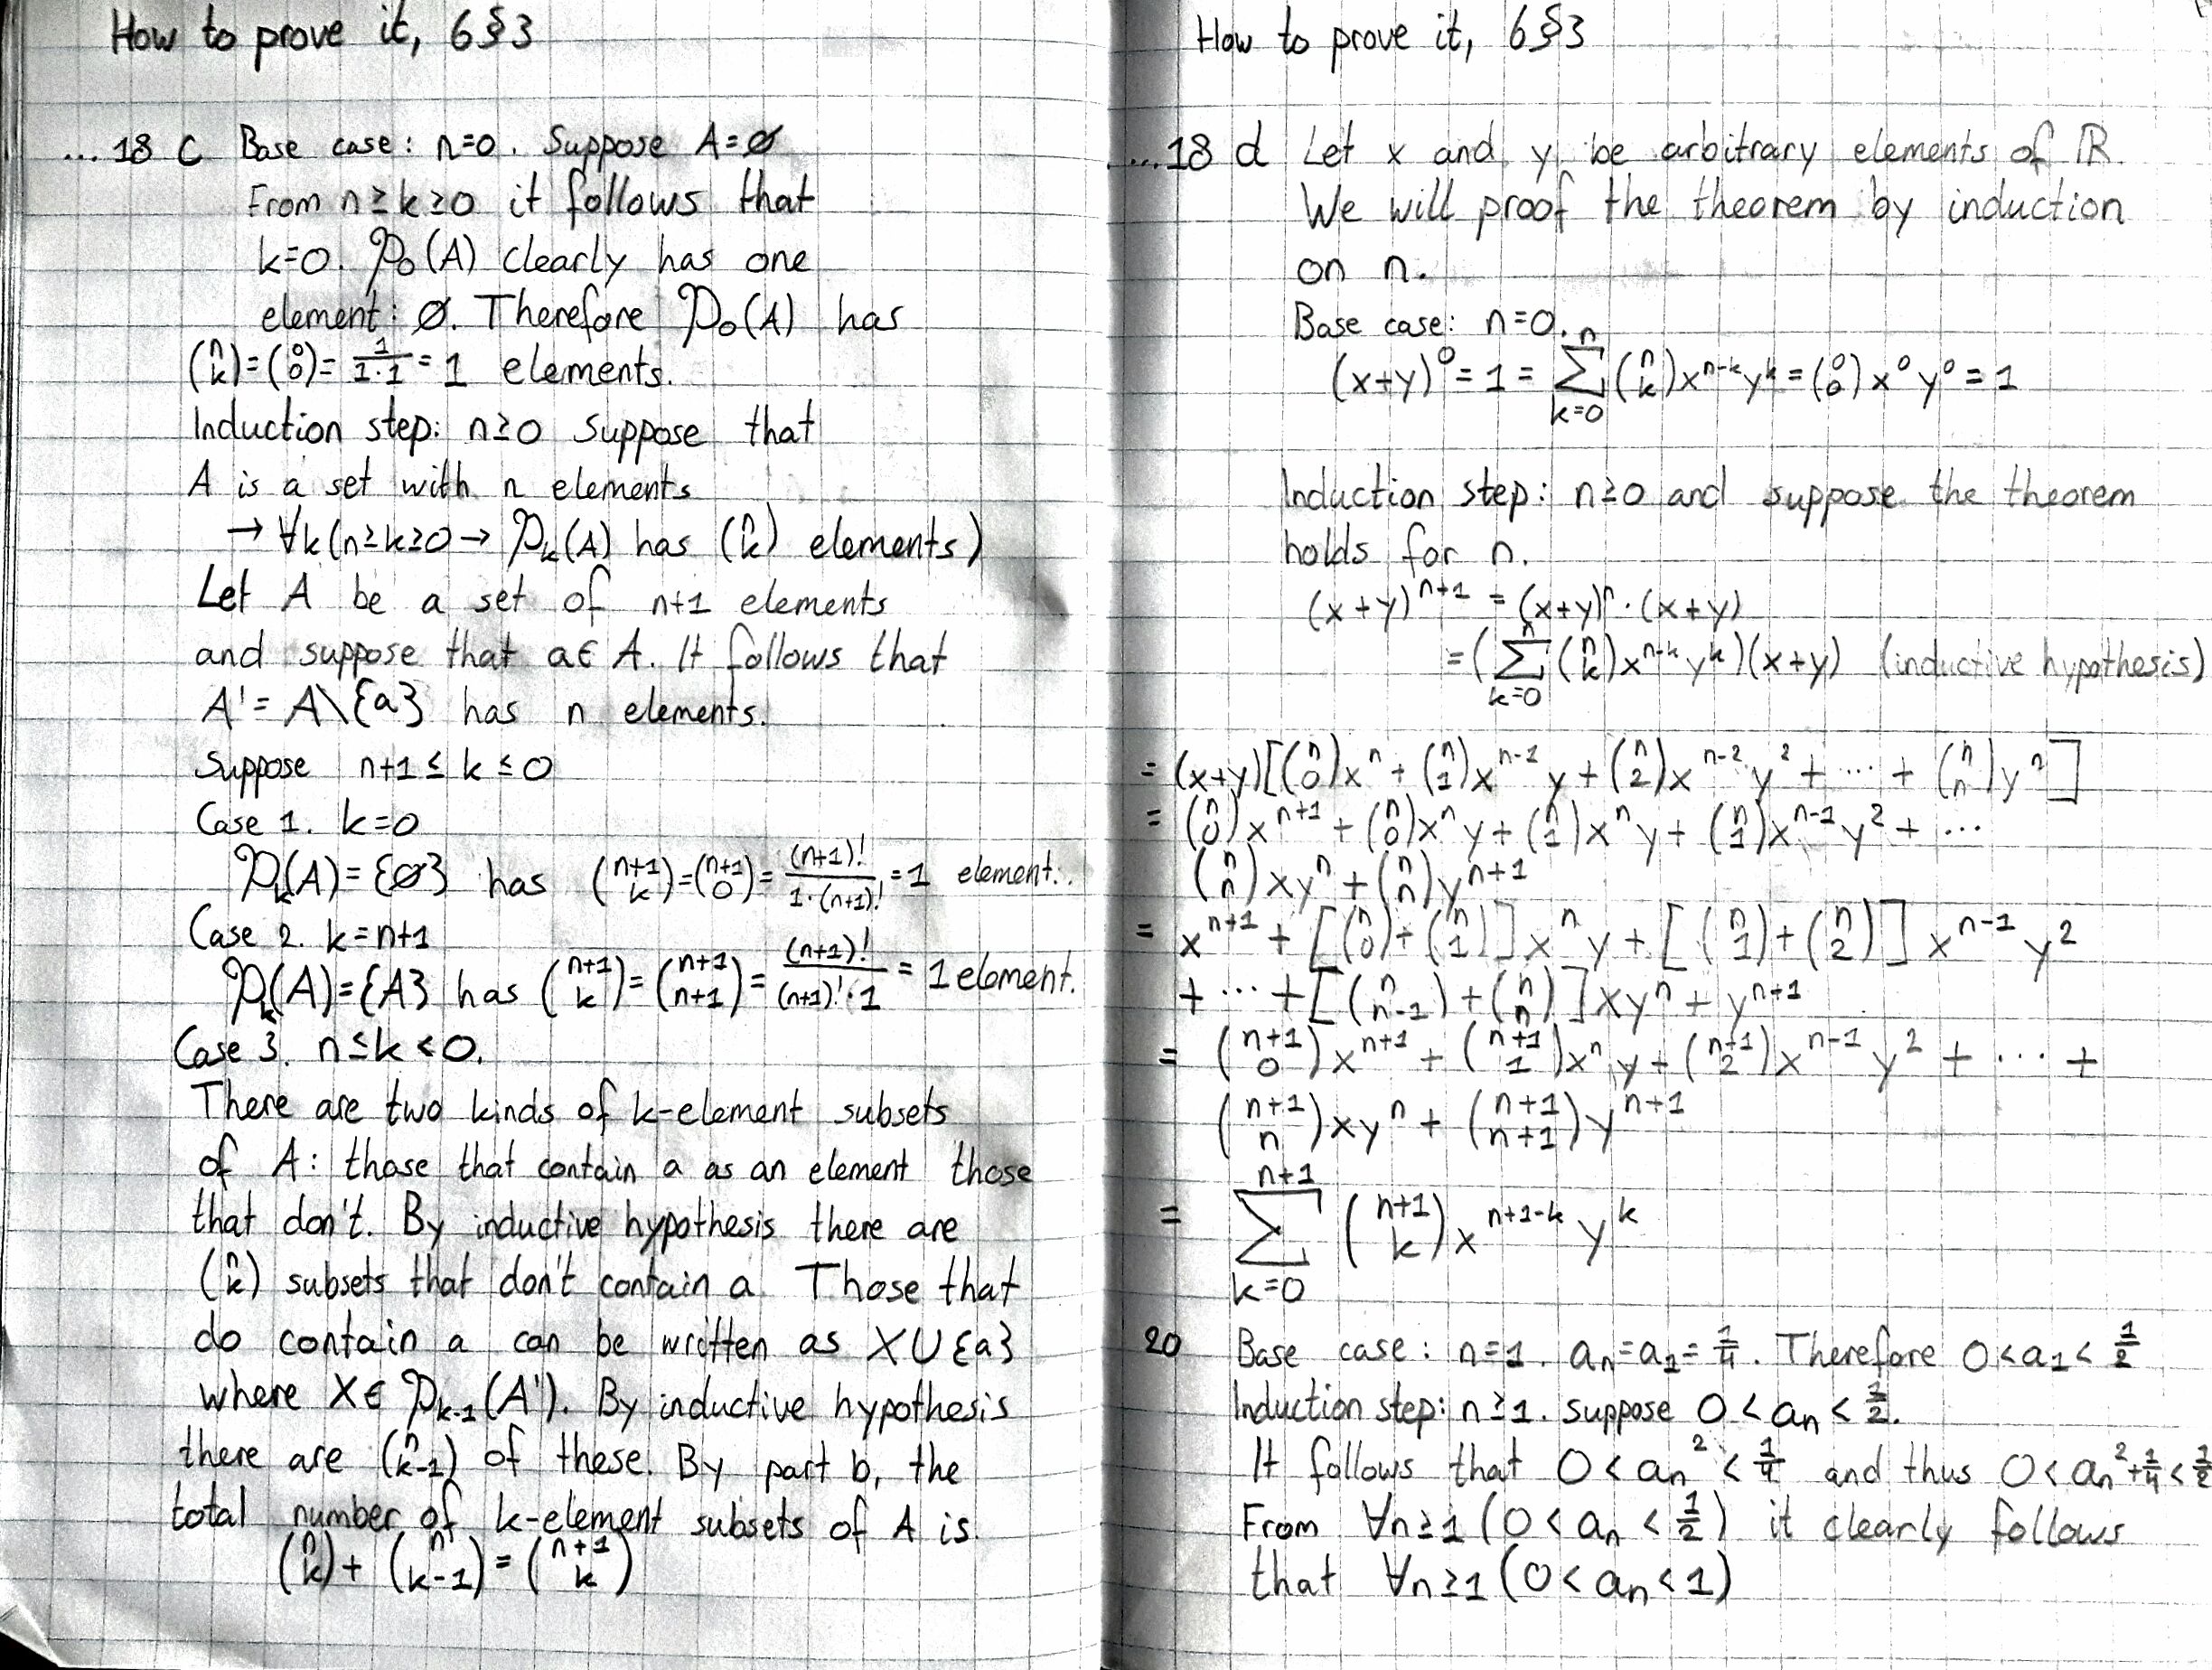 How to prove it, 6§3
...18 c Base case: n=0. Suppose A=∅
From n≥k≥0 it follows that
k=0. 𝒫₀(A) clearly has one
element: ∅. Therefore 𝒫₀(A) has
(n k)=(0 0)= 1/(1·1) = 1 elements.
Induction step: n≥0 suppose that
A is a set with n elements
→ ∀k(n≥k≥0 → 𝒫ₖ(A) has (n k) elements)
Let A be a set of n+1 elements
and suppose that a∈A. It follows that
A' = A\{a} has n elements.
Suppose n+1 ≤ k ≤ 0
Case 1. k=0
𝒫ₖ(A)={∅} has (n+1 k)=(n+1 0)= (n+1)!/(1·(n+1)!) =1 element.
Case 2. k=n+1
𝒫ₖ(A)={A} has (n+1 k)=(n+1 n+1)= (n+1)!/((n+1)!·1) = 1 element.
Case 3. n≤k<0.
There are two kinds of k-element subsets
of A: those that contain a as an element those
that don't. By inductive hypothesis there are
(n k) subsets that don't contain a. Those that
do contain a can be written as X∪{a}
where X∈𝒫ₖ₋₁(A'). By inductive hypothesis
there are (n k-1) of these. By part b, the
total number of k-element subsets of A is
(n k) + (n k-1) = (n+1 k)
How to prove it, 6§3
....18 d Let x and y be arbitrary elements of ℝ.
We will proof the theorem by induction
on n.
Base case: n=0.
(x+y)^0 = 1 = ∑_{k=0}^{n} (n k) x^{n-k} y^k = (0 0) x^0 y^0 = 1
Induction step: n≥0 and suppose the theorem
holds for n.
(x+y)^{n+1} = (x+y)^n · (x+y)
= (∑_{k=0}^{n} (n k) x^{n-k} y^k)(x+y) (inductive hypothesis)
= (x+y)[(n 0)x^n + (n 1)x^{n-1} y + (n 2)x^{n-2} y^2 + ... + (n n)y^n]
= (n 0)x^{n+1} + (n 0)x^n y + (n 1)x^n y + (n 1)x^{n-1} y^2 + ...
(n n)xy^n + (n n)y^{n+1}
= x^{n+1} + [(n 0)+(n 1)]x^n y + [(n 1)+(n 2)] x^{n-1} y^2
+ ... + [(n n-1)+(n n)]xy^n + y^{n+1}
= (n+1 0)x^{n+1} + (n+1 1)x^n y + (n+1 2)x^{n-1} y^2 + ... +
(n+1 n)xy^n + (n+1 n+1)y^{n+1}
= ∑_{k=0}^{n+1} (n+1 k) x^{n+1-k} y^k
20 Base case: n=1. aₙ=a₁=1/4. Therefore 0<a₁<1/2
Induction step: n≥1. suppose 0<aₙ<1/2.
It follows that 0<aₙ²<1/4 and thus 0<aₙ²+1/4<1/2
From ∀n≥1(0<aₙ<1/2) it clearly follows
that ∀n≥1(0<aₙ<1)